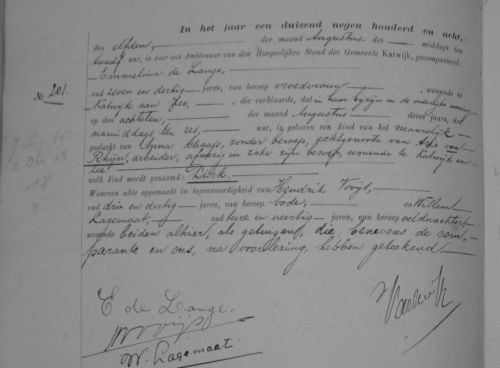 In het jaar een duizend negen honderd en acht,
den elfden, der maand Augustus des middags ten
twaalf ure, is voor ons Ambtenaar van den Burgerlijken Stand der Gemeente Katwijk, gecompareerd:
Emmelina de Lange,
No 201.
oud zeven en dertig jaren, van beroep vroedvrouw, wonende te
Katwijk aan Zee, die verklaarde, dat in haar bijzijn in de ouderlijke woning
op den achtsten, der maand Augustus dezes jaars, des
namiddags ten zes, ure, is geboren een kind van het mannelijk
geslacht van Anna Schaap, zonder beroep, echtgenoote van van
Rhijn, arbeider, afwezig in zake zijn beroep, wonende te Katwijk aan
Zee
welk kind wordt genaamd: Dirk.
Waarvan akte opgemaakt in tegenwoordigheid van Hendrik
oud drie en dertig jaren, van beroep bode, en Willem
Lagemaat, oud twee en veertig jaren, van beroep veldwachter
wonende beiden alhier, als getuigen, die benevens de com-
parante en ons, na voorlezing, hebben geteekend.
E de Lange.
W. Lagemaat.